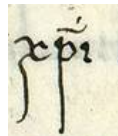 xp̄i